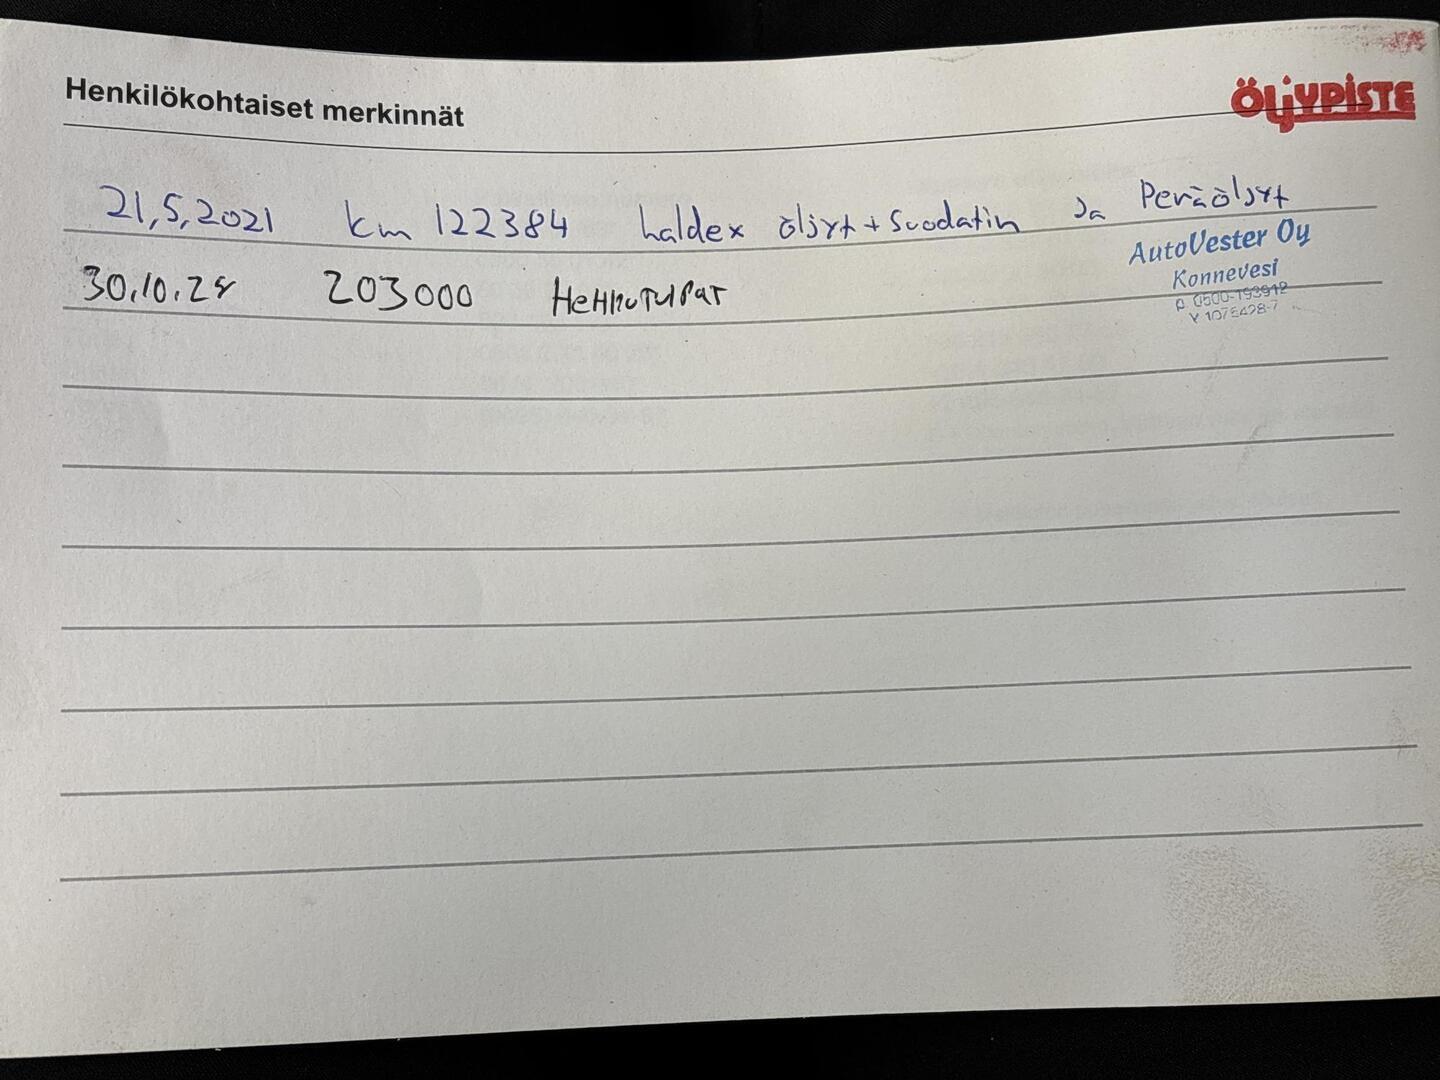 Henkilökohtaiset merkinnät
ÖLJYPISTE
21,5,2021 km 122384 haldex öljyt + Suodatin Ja Peräöljyt
AutoVester Oy
Konnevesi
30.10.24 203000 Hehkutulpat
p. 0500-193912